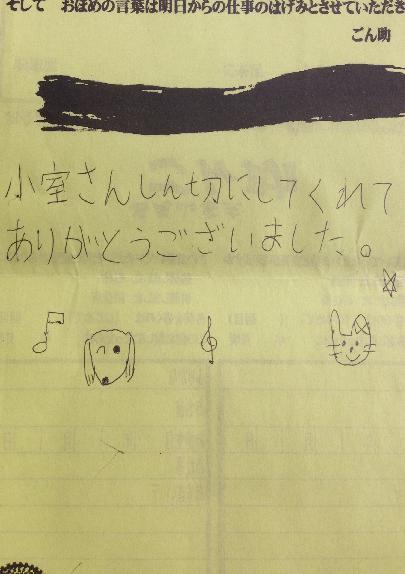 そして　おほめの言葉は明日からの仕事のはげみとさせていただき
ごん助
小室さんしん切にしてくれて
ありがとうございました。